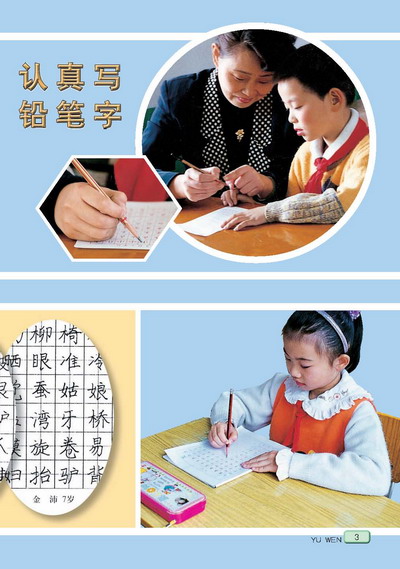 认真写
铅笔字
柳 椅
眼 准 冷
蚕 姑 娘
湾 牙 桥
旋 卷 易
抬 驴 背
金 沛 7岁
YU WEN 3